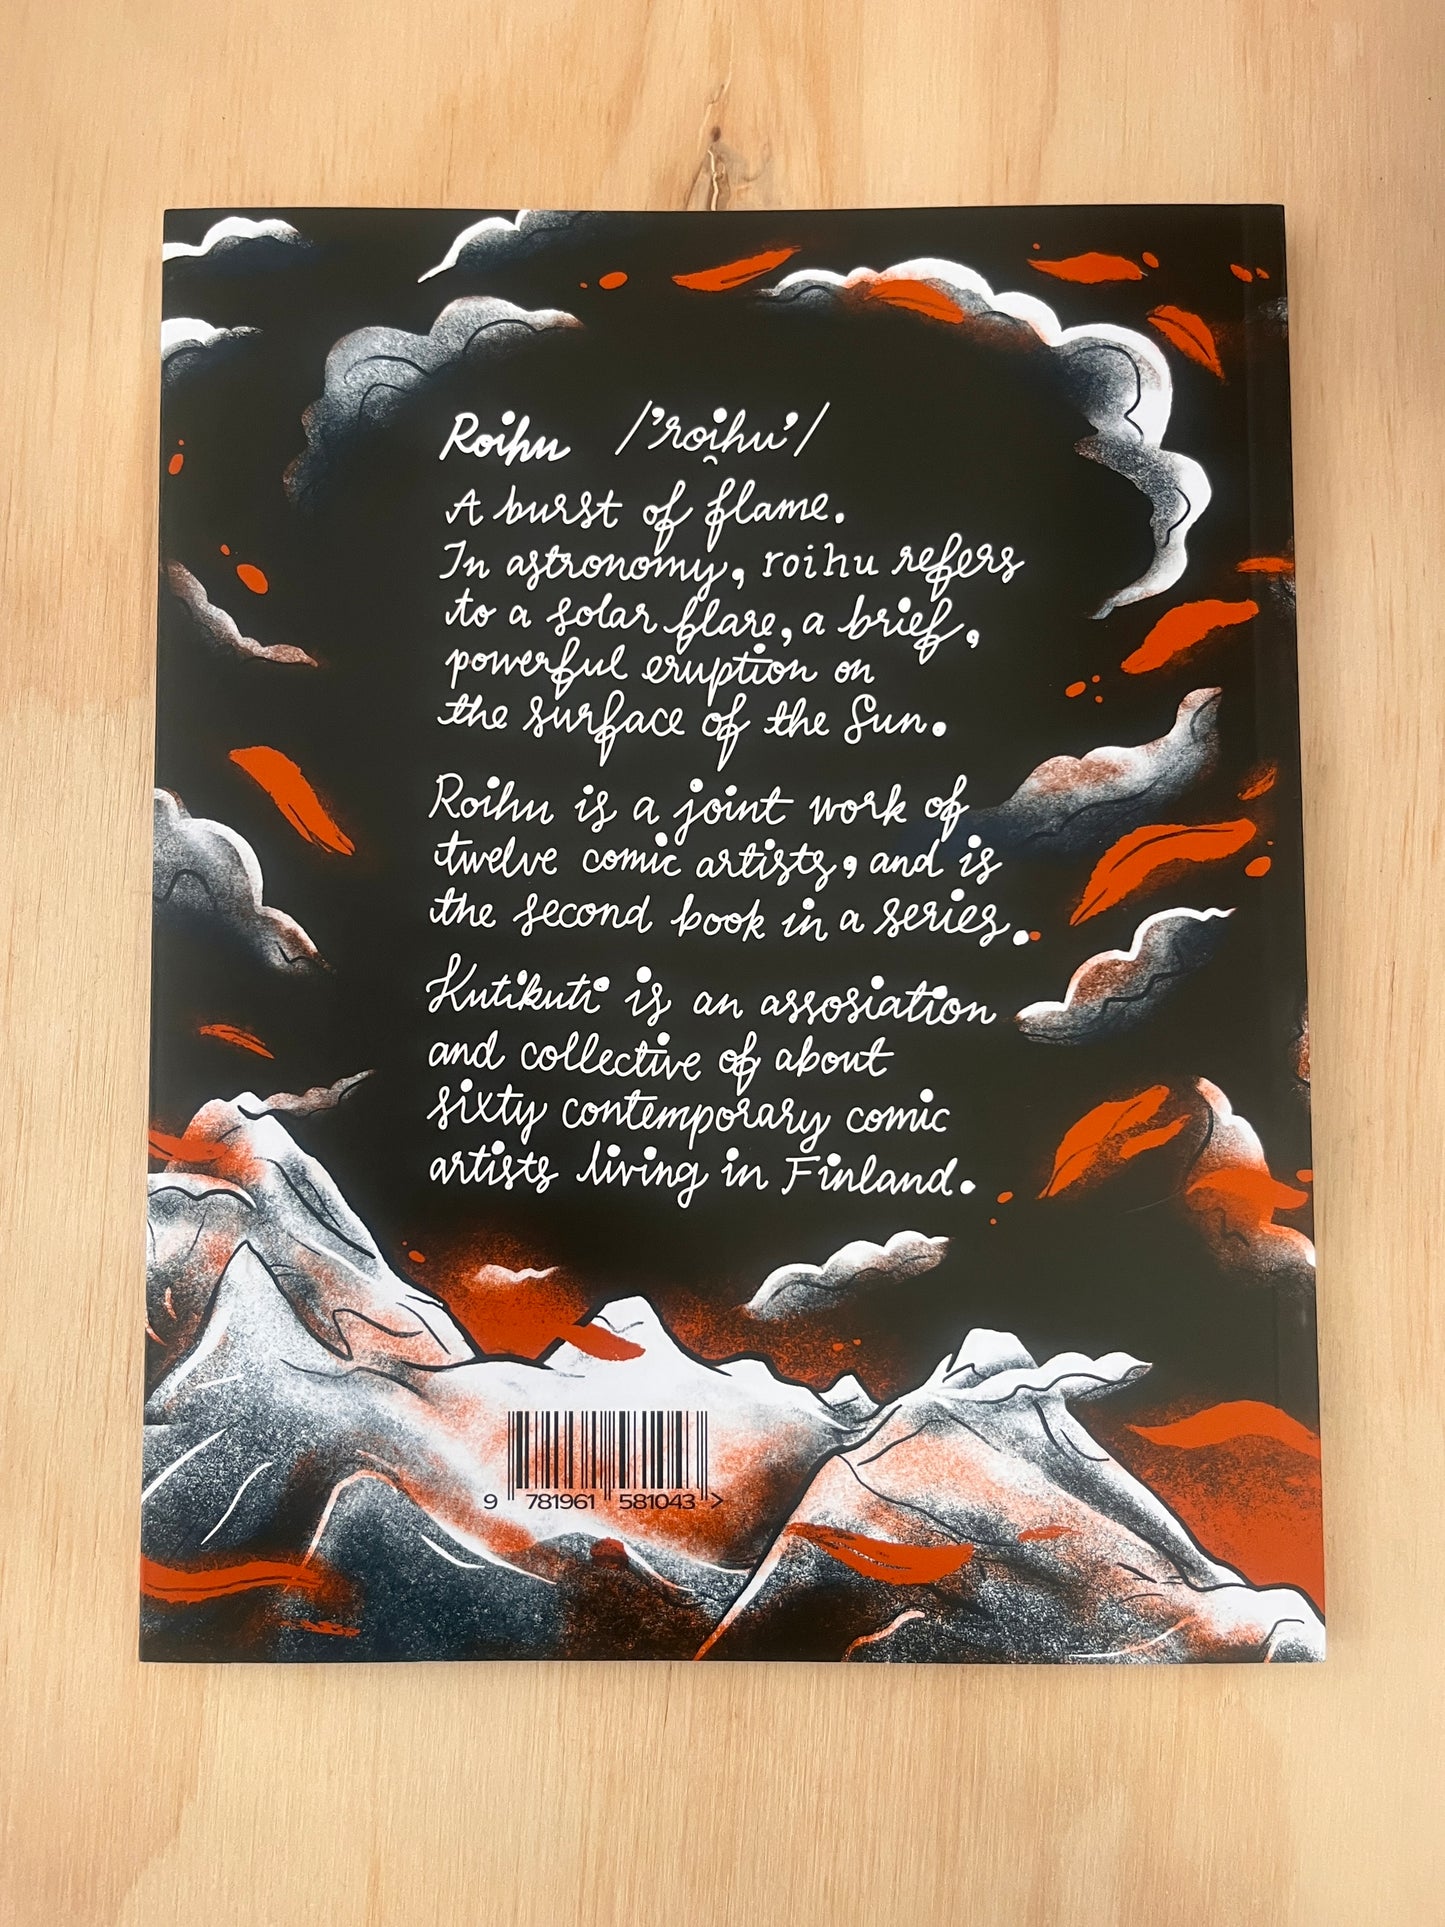 Roihu /'roi̯hu'/
A burst of flame.
In astronomy, roihu refers
to a solar flare, a brief,
powerful eruption on
the surface of the Sun.
Roihu is a joint work of
twelve comic artists, and is
the second book in a series.
Kutikuti is an assosiation
and collective of about
sixty contemporary comic
artists living in Finland.
9 781961 581043 >